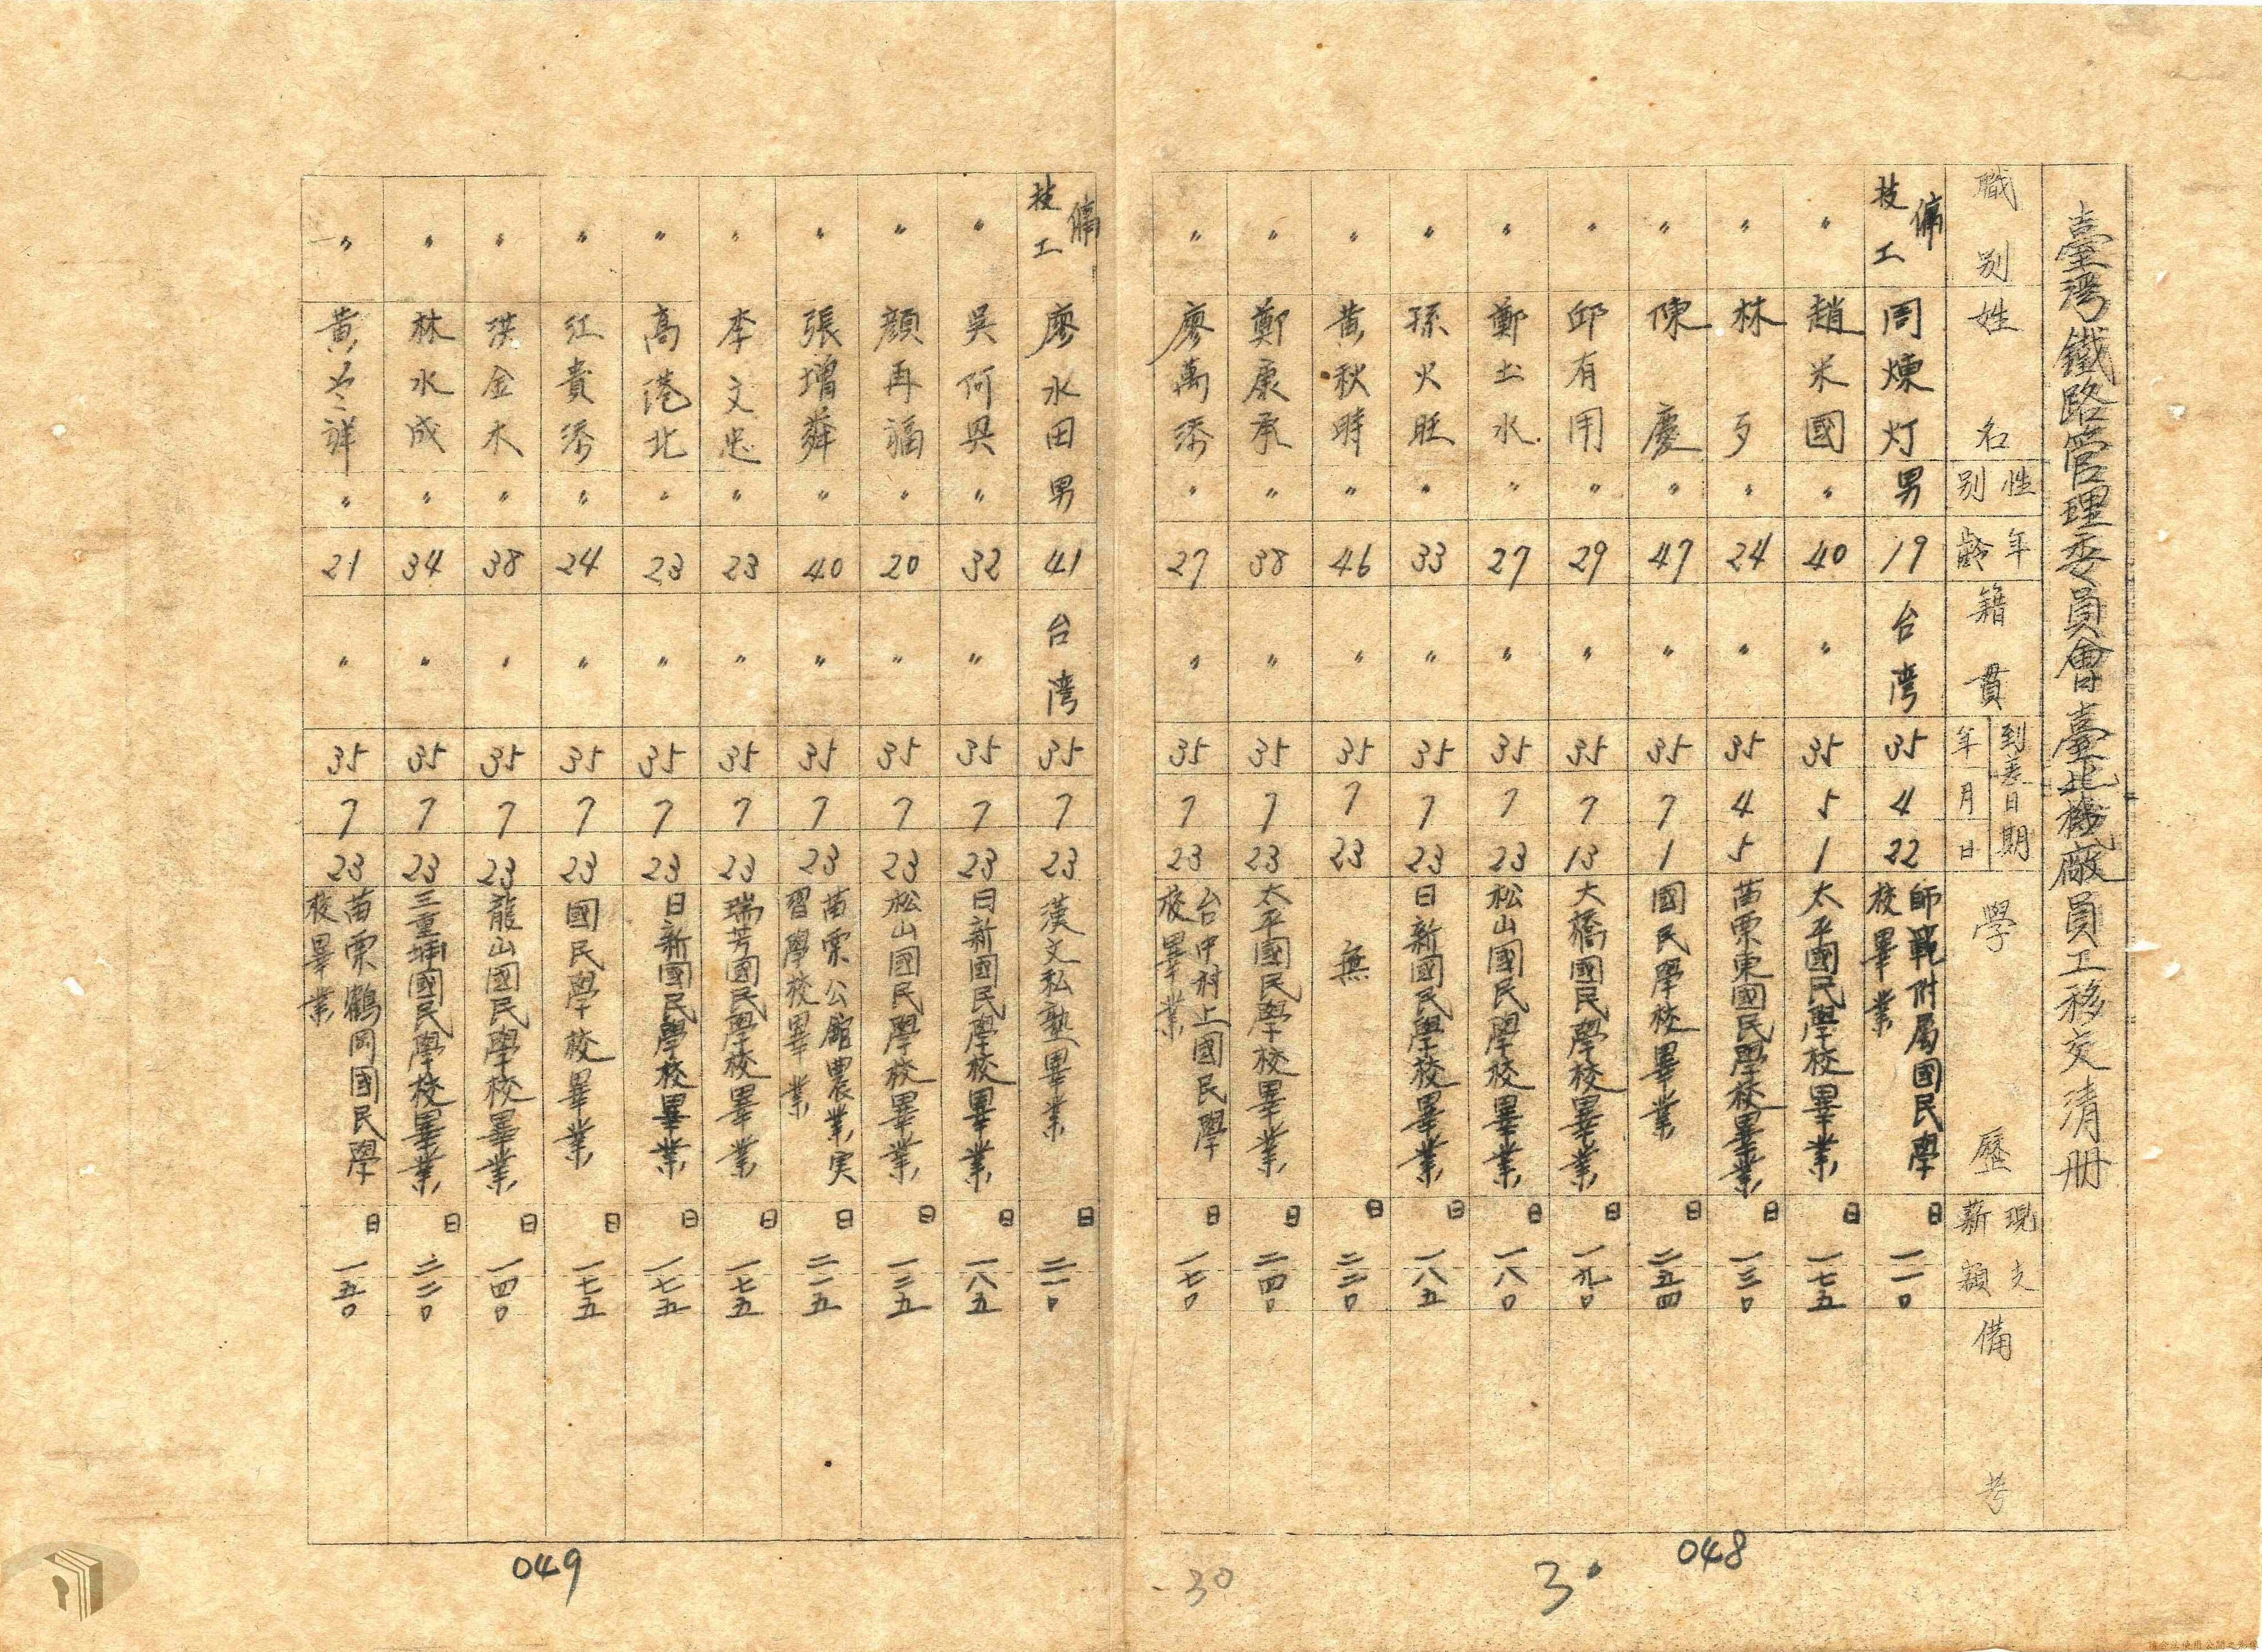 臺灣鐵路管理委員會臺北機廠員工移交清册
職別 姓名 性別 年齡 籍貫 到差日期 年 月 日 學歷 現支薪額 備考
技工 周煉灯 男 19 台湾 35 4 22 師範附属國民學校畢業 日 二一〇
〃 趙米國 〃 40 〃 35 5 1 太平國民學校畢業 日 一七五
〃 林歹 〃 24 〃 35 4 5 苗栗東國民學校畢業 日 一三〇
〃 陳慶 〃 47 〃 35 7 1 國民學校畢業 日 二五四
〃 邱有用 〃 29 〃 35 7 13 大橋國民學校畢業 日 一九〇
〃 鄭土水 〃 27 〃 35 7 23 松山國民學校畢業 日 一八〇
〃 孫火旺 〃 33 〃 35 7 23 日新國民學校畢業 日 一八五
〃 黃秋時 〃 46 〃 35 7 23 無 日 二二〇
〃 鄭康承 〃 38 〃 35 7 23 太平國民學校畢業 日 二四〇
〃 廖萬添 〃 27 〃 35 7 23 台中村上國民學校畢業 日 一七〇
048
30
30
技工 廖永田 男 41 台湾 35 7 23 漢文私塾畢業 日 二一〇
〃 吳何興 〃 32 〃 35 7 23 日新國民學校畢業 日 一八五
〃 顏再福 〃 20 〃 35 7 23 松山國民學校畢業 日 一三五
〃 張增舜 〃 40 〃 35 7 23 苗栗公館農業実習學校畢業 日 二一五
〃 李文忠 〃 23 〃 35 7 23 瑞芳國民學校畢業 日 一七五
〃 高港北 〃 23 〃 35 7 23 日新國民學校畢業 日 一七五
〃 江貴添 〃 24 〃 35 7 23 國民學校畢業 日 一七五
〃 洪金木 〃 38 〃 35 7 23 龍山國民學校畢業 日 一四〇
〃 林水成 〃 34 〃 35 7 23 三重埔國民學校畢業 日 二二〇
〃 黃祥 〃 21 〃 35 7 23 苗栗鶴岡國民學校畢業 日 一五〇
049